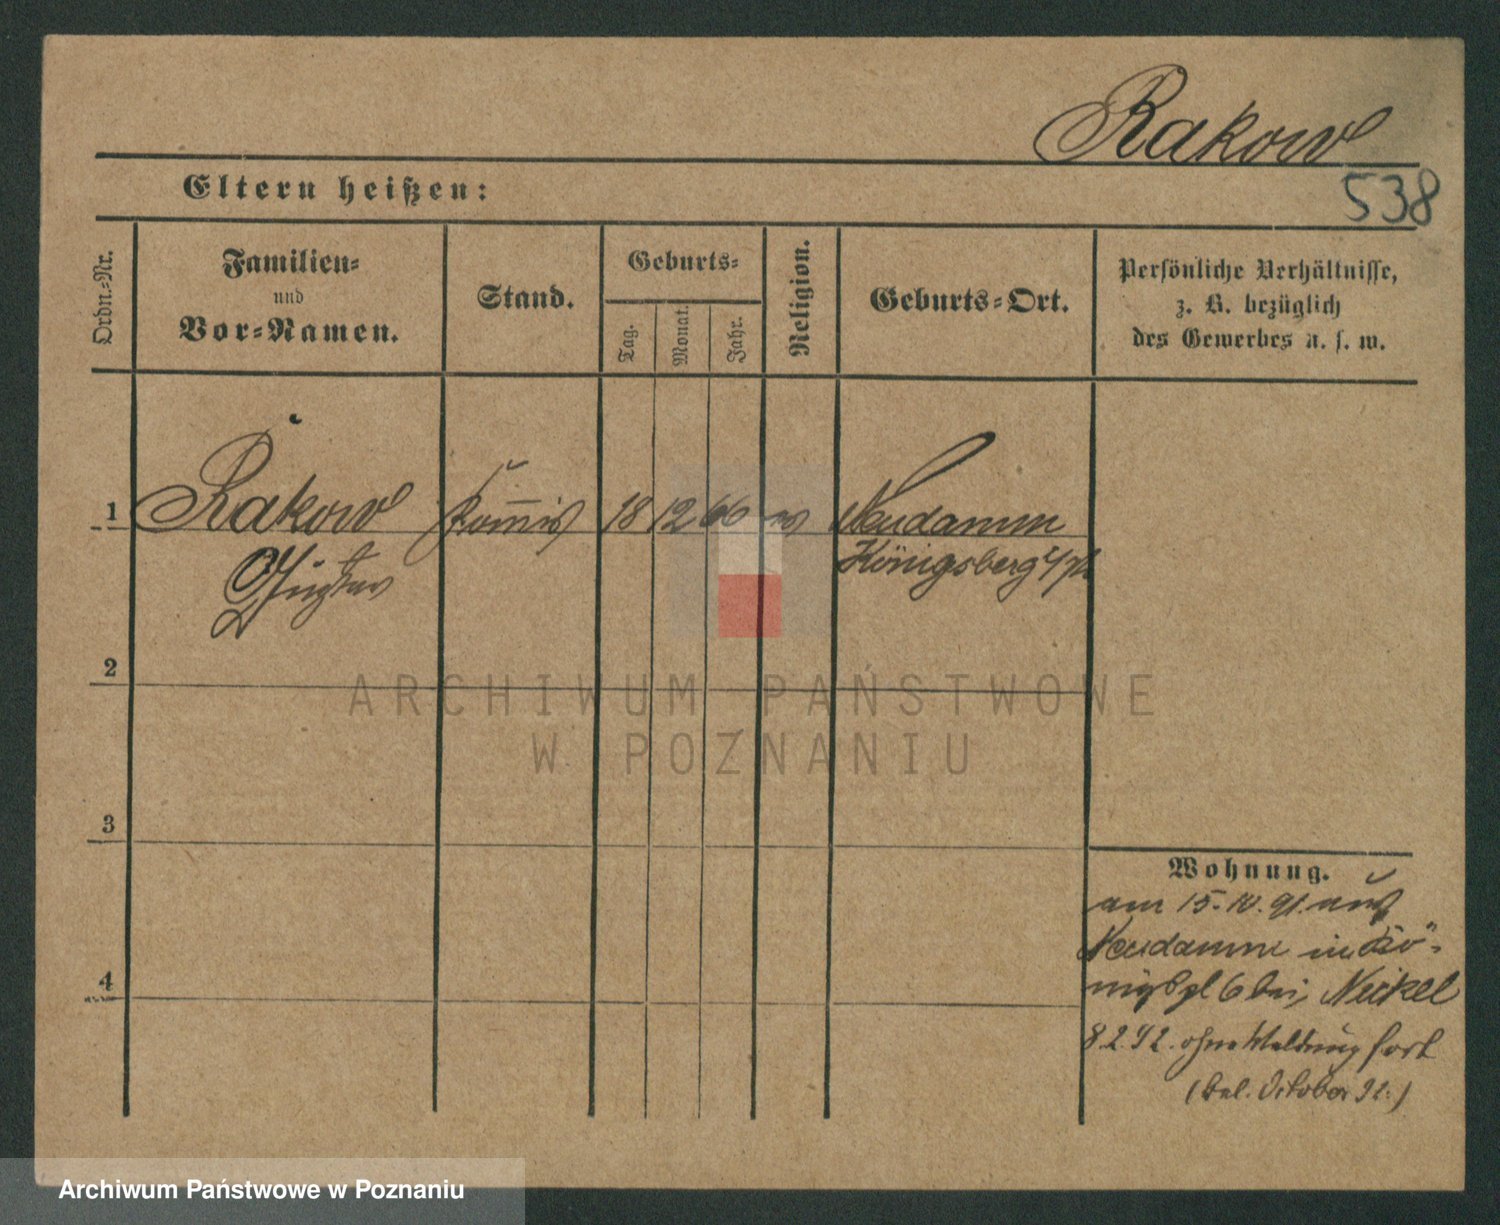 Rakow
538
Eltern heißen:
Ordn.-Nr.
Familien-
und
Vor-Namen.
Stand.
Geburts-
Tag.
Monat.
Jahr.
Religion.
Geburts-Ort.
Persönliche Verhältnisse,
z. B. bezüglich
des Gewerbes u. s. w.
1
Rakow
Kom̅is
18
12
66
Neudamm
Gustav
Königsberg
2
ARCHIWUM PAŃSTWOWE
W POZNANIU
3
Wohnung.
am 15. 10. 91. aus
Neudamm in Kö-
nigspl 6 bei Nickel
8.2.92. ohne Meldung fort
October 92.)
4
Archiwum Państwowe w Poznaniu